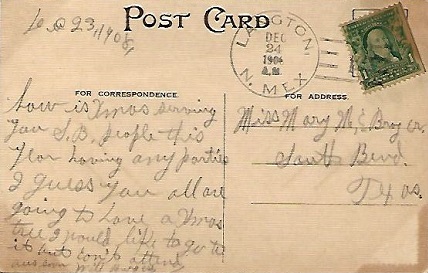 Post Card
Dec 23, 1908
LAKINGTON
DEC
24
190
A.M.
N. MEX.
1
FOR CORRESPONDENCE.
FOR ADDRESS.
how is Xmas serving
you S.B. people this
Year having any parties
I guess you all are
going to have a Xmas
tree I would like to go to
it but can't attend
Miss Mary
South Bend.
Texas.